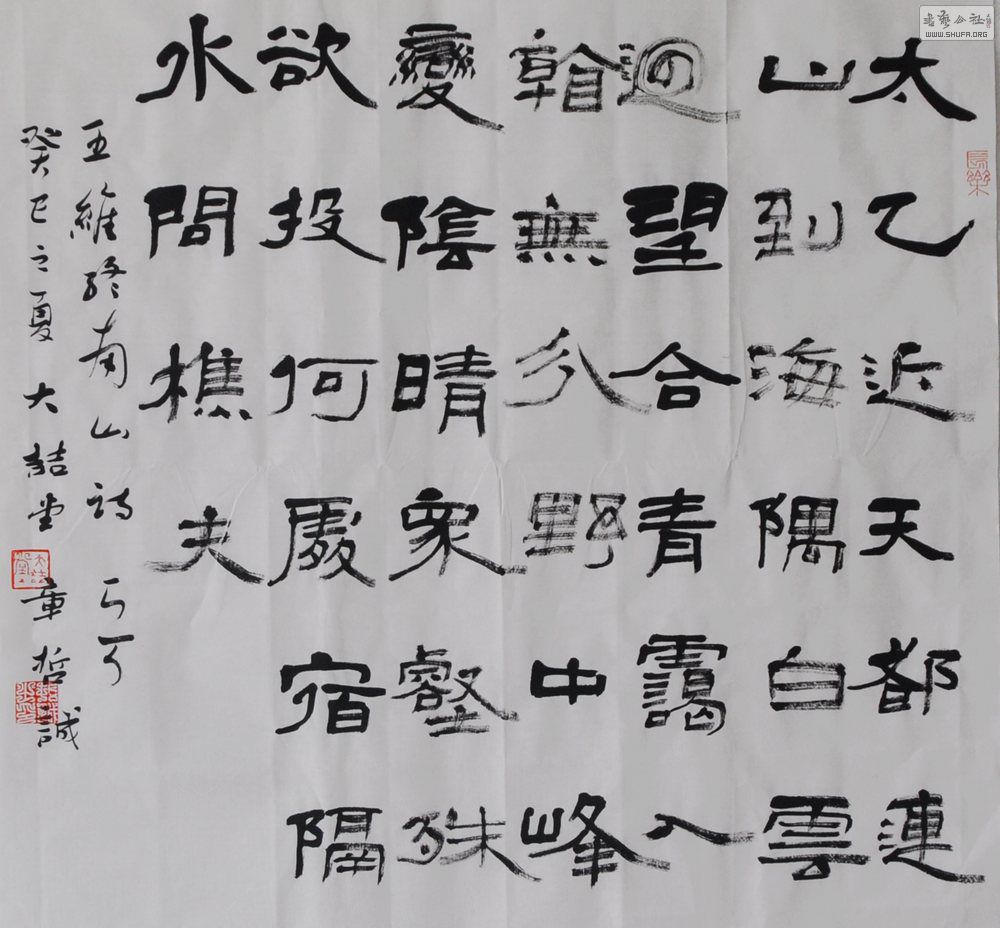 太乙近天都連
山到海隅白雲
迴望合青靄入
看無分野中峰
變陰晴眾壑殊
欲投何處宿隔
水問樵夫
王維終南山詩
癸巳之夏 大喆堂 章哲誠
長樂
書藝公社
WWW.SHUFA.ORG